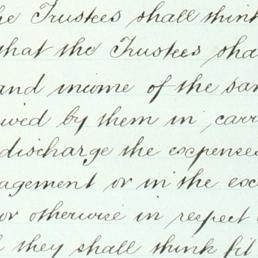 he Trustees shall think
that the Trustees sha
and income of the sam
ived by them in carr
discharge the expenses
agement or in the exe
or otherwise in respect
they shall think fit